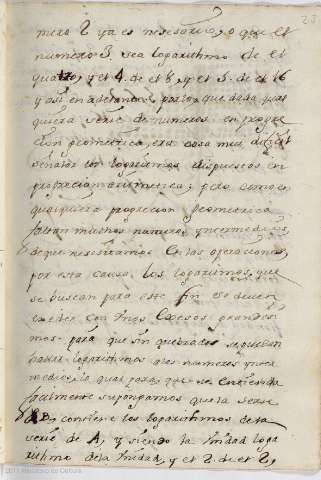 mero 2 ya es nesesario, o que el
numero 3, sea logarithmo de el
quatro, y el 4. de el 8, y el 5. de el 16
y asi en adelante, por lo que dada qual
quiera serie de numeros en progre
cion geometrica, era cosa mui dificil
señalar con logarithmos dispuestos en
progrecion arithmetica; pero como en
qualquiera progrecion Geometrica
faltan muchos numeros yntermedios,
de que nesesitamos En las operaciones,
por esta causa, los logaritmos, que
se buscan para este fin se deven
exeder con unos Exesos grandisi
mos para que sin quebrados se puedan
hallar logarithmos a los numeros ynter
medios, lo qual para que se Entienda
facilmente supongamos que la serie
B, contiene los logarithmos de la
serie de A, y siendo la Unidad loga
rithmo de la Unidad, y el 2. de el 2,
23
2011 Ministerio de Cultura